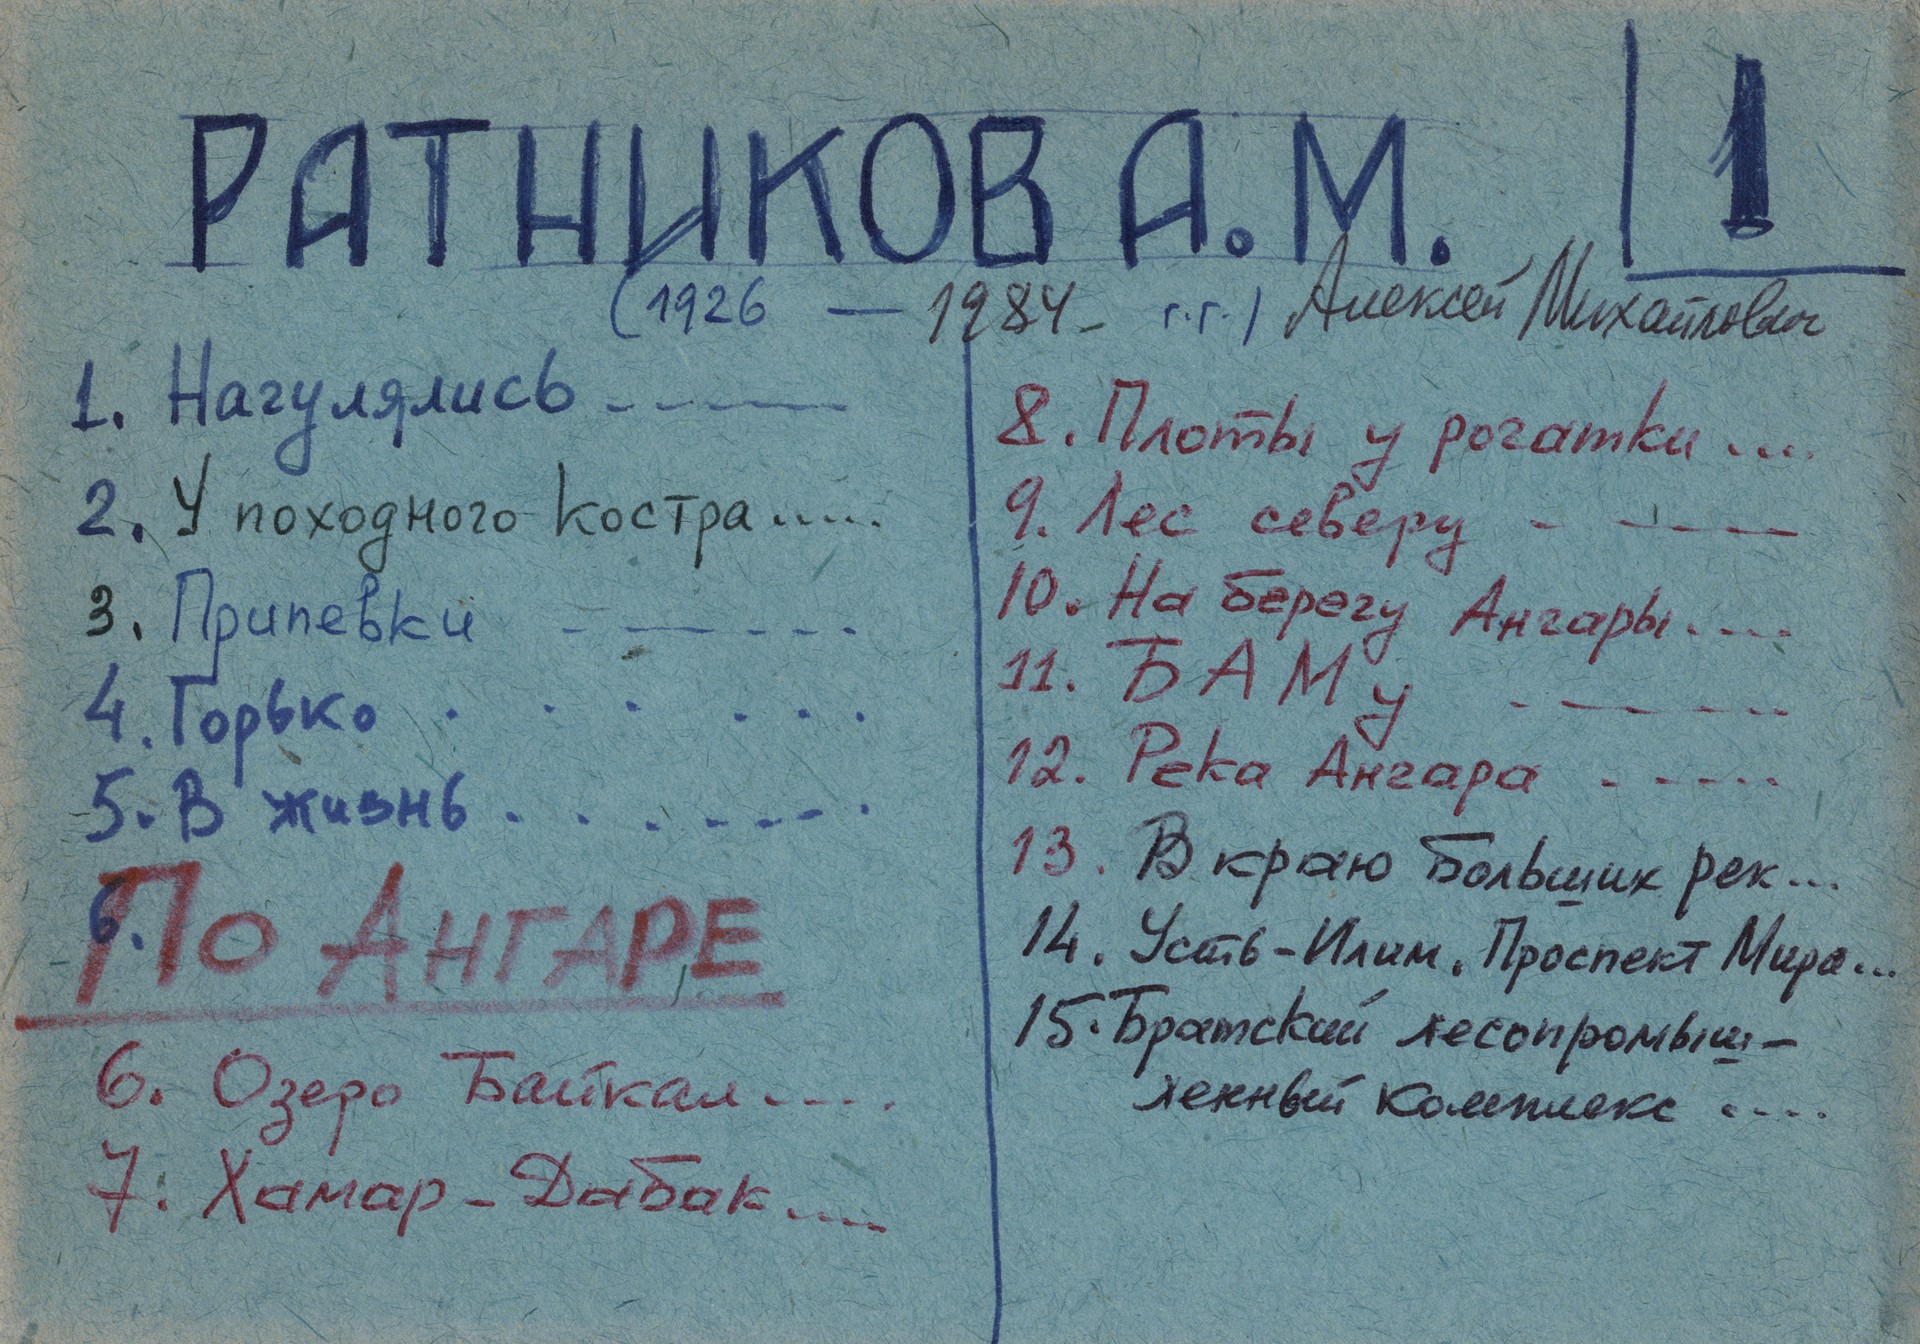 РАТНИКОВ А.М.
1
(1926 — 1984 г.г.) Алексей Михайлович
1. Нагулялись
2. У походного костра.....
3. Припевки
4. Горько
5. В жизнь
6. По Ангаре
6. Озеро Байкал....
7. Хамар-Дабак....
8. Плоты у рогатки...
9. Лес северу
10. На берегу Ангары....
11. БАМу
12. Река Ангара
13. В краю больших рек...
14. Усть-Илим. Проспект Мира...
15. Братский лесопромыш-
ленный комплекс ....